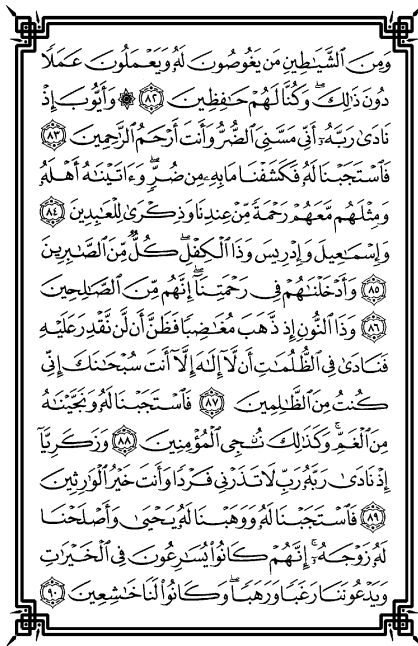 وَمِنَ ٱلشَّيَـٰطِينِ مَن يَغُوصُونَ لَهُۥ وَيَعْمَلُونَ عَمَلًا
دُونَ ذَٰلِكَ ۖ وَكُنَّا لَهُمْ حَـٰفِظِينَ ٨٢ ۞ وَأَيُّوبَ إِذْ
نَادَىٰ رَبَّهُۥٓ أَنِّى مَسَّنِىَ ٱلضُّرُّ وَأَنتَ أَرْحَمُ ٱلرَّٰحِمِينَ ٨٣
فَٱسْتَجَبْنَا لَهُۥ فَكَشَفْنَا مَا بِهِۦ مِن ضُرٍّ ۖ وَءَاتَيْنَـٰهُ أَهْلَهُۥ
وَمِثْلَهُم مَّعَهُمْ رَحْمَةً مِّنْ عِندِنَا وَذِكْرَىٰ لِلْعَـٰبِدِينَ ٨٤
وَإِسْمَـٰعِيلَ وَإِدْرِيسَ وَذَا ٱلْكِفْلِ ۖ كُلٌّ مِّنَ ٱلصَّـٰبِرِينَ
٨٥ وَأَدْخَلْنَـٰهُمْ فِى رَحْمَتِنَآ ۖ إِنَّهُم مِّنَ ٱلصَّـٰلِحِينَ
٨٦ وَذَا ٱلنُّونِ إِذ ذَّهَبَ مُغَـٰضِبًا فَظَنَّ أَن لَّن نَّقْدِرَ عَلَيْهِ
فَنَادَىٰ فِى ٱلظُّلُمَـٰتِ أَن لَّآ إِلَـٰهَ إِلَّآ أَنتَ سُبْحَـٰنَكَ إِنِّى
كُنتُ مِنَ ٱلظَّـٰلِمِينَ ٨٧ فَٱسْتَجَبْنَا لَهُۥ وَنَجَّيْنَـٰهُ
مِنَ ٱلْغَمِّ ۚ وَكَذَٰلِكَ نُـۨجِى ٱلْمُؤْمِنِينَ ٨٨ وَزَكَرِيَّآ
إِذْ نَادَىٰ رَبَّهُۥ رَبِّ لَا تَذَرْنِى فَرْدًا وَأَنتَ خَيْرُ ٱلْوَٰرِثِينَ
٨٩ فَٱسْتَجَبْنَا لَهُۥ وَوَهَبْنَا لَهُۥ يَحْيَىٰ وَأَصْلَحْنَا
لَهُۥ زَوْجَهُۥٓ ۚ إِنَّهُمْ كَانُوا۟ يُسَـٰرِعُونَ فِى ٱلْخَيْرَٰتِ
وَيَدْعُونَنَا رَغَبًا وَرَهَبًا ۖ وَكَانُوا۟ لَنَا خَـٰشِعِينَ ٩٠